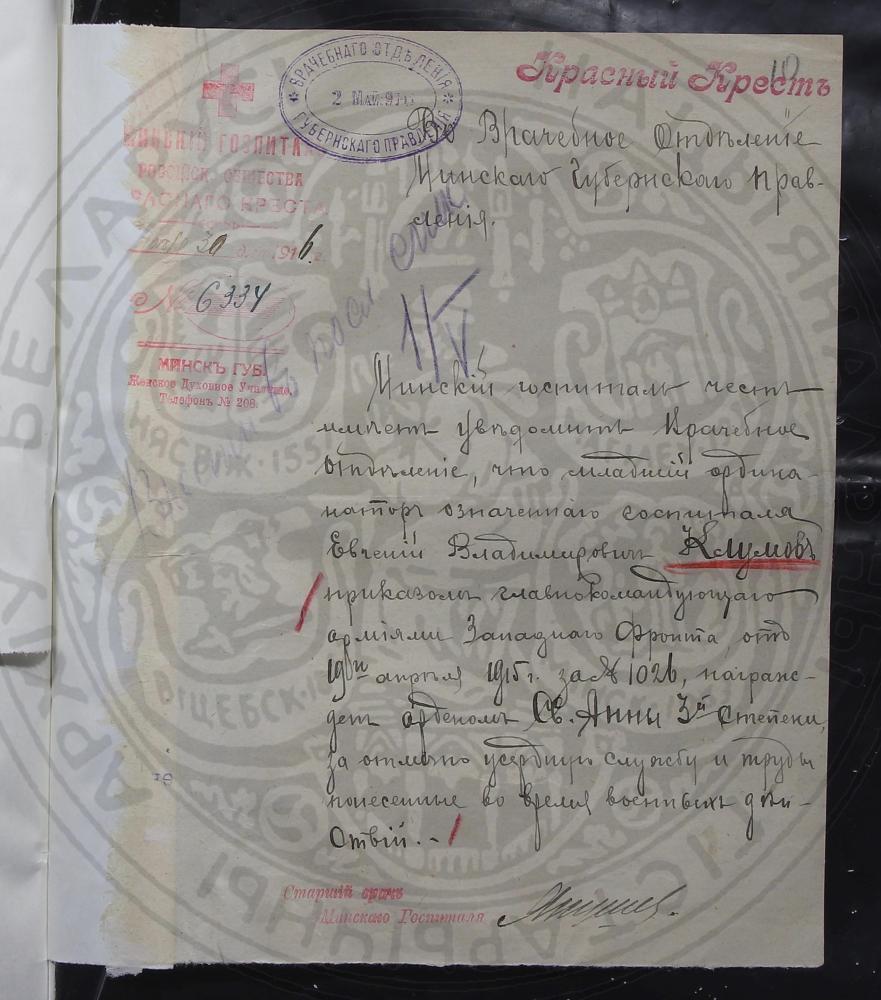 Красный Крестъ
10
ВРАЧЕБНАГО ОТДѢЛЕНІЯ
2 МАЙ 91
ГУБЕРНСКАГО ПРАВЛЕНІЯ
Во Врачебное Отдѣленіе
Минскаго Губернскаго Прав-
ленія.
МИНСКІЙ ГОСПИТАЛ
РОССІЙСК. ОБЩЕСТВА
КРАСНАГО КРЕСТА
30 1916 г.
№ 6334
МИНСКЪ ГУБ.
Женское Духовное Училище.
Телефонъ № 208.
Минскій госпиталь честь
имѣетъ увѣдомить Врачебное
Отдѣленіе, что младшій ордина-
наторъ означеннаго госпиталя
Евгеній Владимировичъ Клумовъ
приказомъ главнокомандующаго
арміями Западнаго Фронта отъ
19го апрѣля 1915 г. за № 1026, награж-
денъ орденомъ Св. Анны 3й степени,
за отлично усердную службу и труды
понесенные во время военныхъ дѣй-
ствій. -
Старшій врачъ
Минскаго Госпиталя